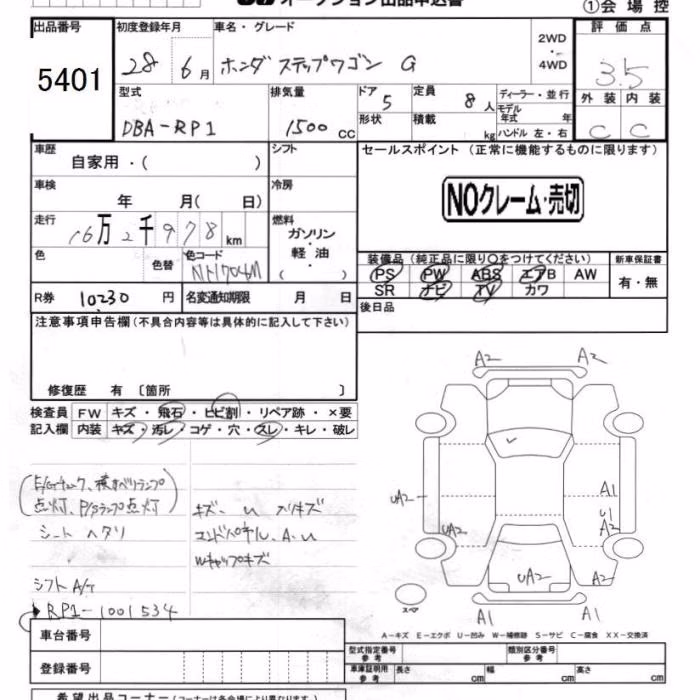 オークション出品申込書
①会場控
出品番号 5401
初度登録年月 28年 6月
車名・グレード ホンダ ステップワゴン G
2WD ・ 4WD
評価点 3.5
外装 C 内装 C
型式 DBA-RP1
排気量 1500 cc
ドア 5 形状
定員 8人 積載 kg
ディーラー・並行
モデル年式 年
ハンドル 左・右
車歴 自家用・( )
シフト
セールスポイント (正常に機能するものに限ります)
NOクレーム・売切
車検 年 月( 日)
冷房
走行 16万2千978km
燃料 ガソリン・軽油・( )
色 色替 色コード
装備品 (純正品に限り○をつけてください)
PS PW ABS エアB AW
SR ナビ TV カワ
新車保証書 有・無
R券 10230円
名変通知期限 月 日
後日品
注意事項申告欄(不具合内容等は具体的に記入して下さい)
修復歴 有 〔箇所 〕
検査員 FW キズ・飛石・ヒビ割・リペア跡・×要
記入欄 内装 キズ・汚レ・コゲ・穴・スレ・キレ・破レ
(E/Gチェック、横すべりランプ
点灯、P/Sランプ点灯)
シート ヘタリ
シフト A/T
RP1-1001534
キズ、U ハリキズ
エンドパネル、A、U
Wキャップキズ
A2 A2
UA2 A1
U1
A2
UA2
UA2 A2
A1 A1
スペア
A-キズ E-エクボ U-凹み W-補修跡 S-サビ C-腐食 XX-交換済
車台番号
登録番号
型式指定番号 参考
類別区分番号 参考
車庫証明用 参考 長さ cm 幅 cm 高さ cm
希望出品コーナー(コーナーは各会場により異なります。)